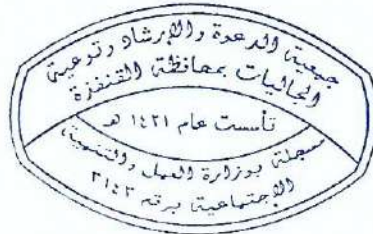 جمعية الدعوة والإرشاد وتوعية
الجاليات بمحافظة القنفذة
تأسست عام ١٤٢١ هـ
مسجلة بوزارة العمل والتنمية،
الاجتماعية برقم ٣١٤٢